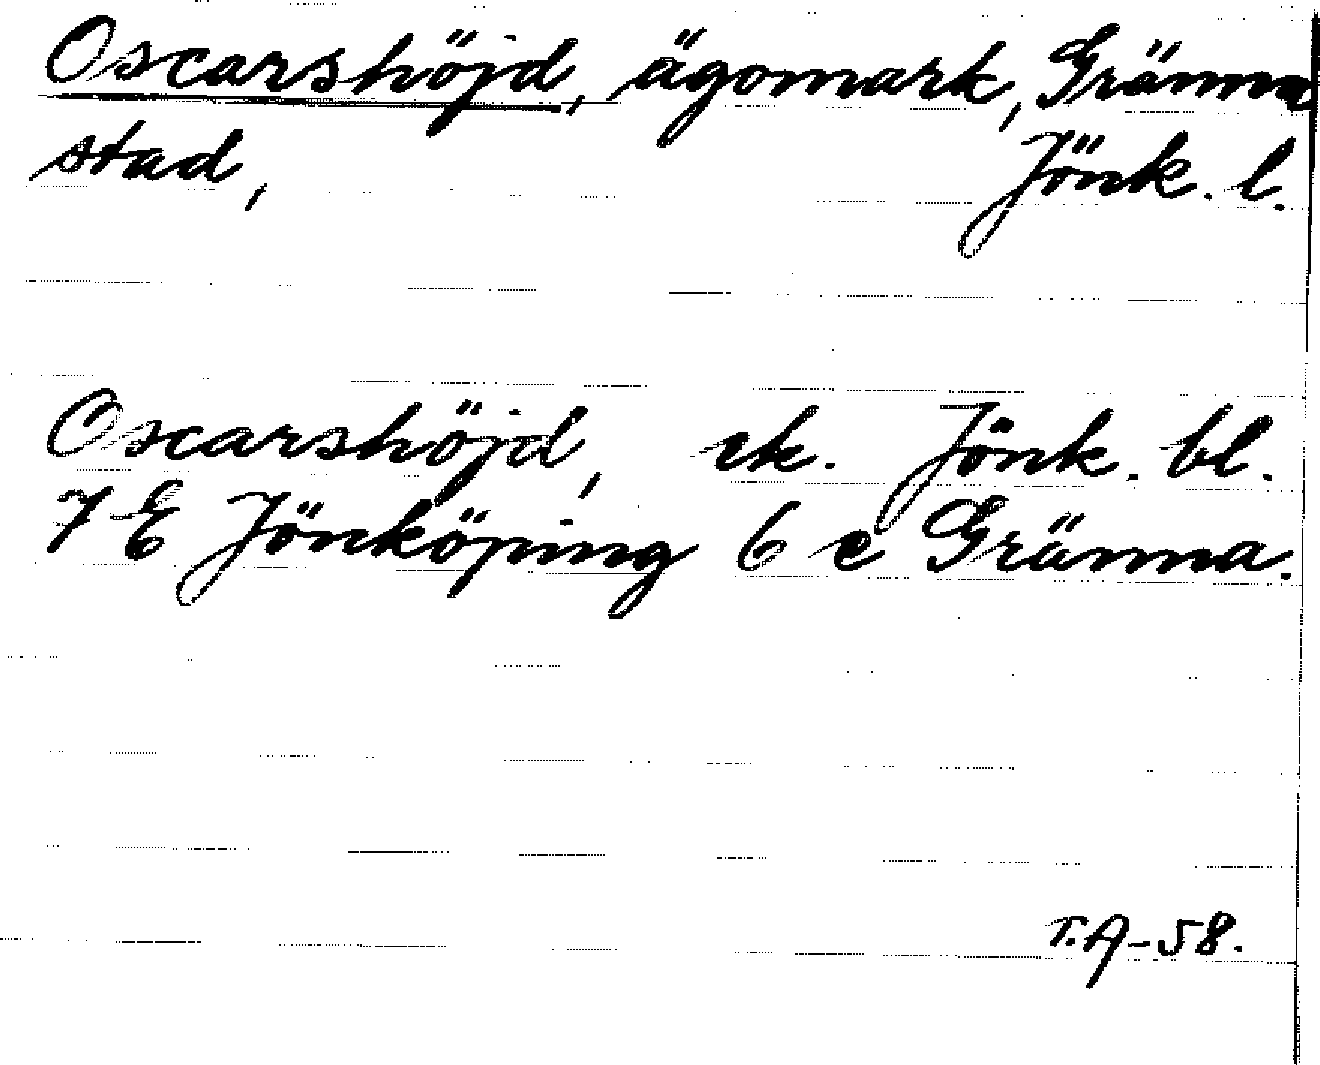 Oscarshöjd, ägomark, Gränna
stad, Jönk. l.
Oscarshöjd, ek. Jönk. bl.
7 E Jönköping 6 e Gränna.
T.A-58.